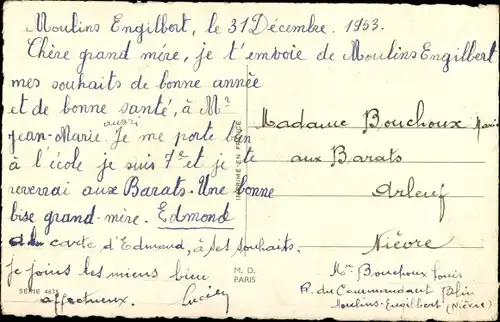 Moulins Engilbert, le 31 Décembre. 1953.
Chère grand mère, je t'envoie de Moulins Engilbert
mes souhaits de bonne année
et de bonne santé, à Mr
aussi
Jean-Marie. Je me porte bien
à l'école je suis 7e et je te
reverrai aux Barats. Une bonne
bise grand-mère. Edmond
carte d'Edmond, à ses souhaits.
je joins les miens bien
affectueux. Lucien
SERIE 4673
IMPRIMÉ EN FRANCE
M. D.
PARIS
Madame Bouchoux Marie
aux Barats
Arleuf
Nièvre
Mr Bouchoux Louis
R. du Commandant
Moulins-Engilbert (Nièvre)